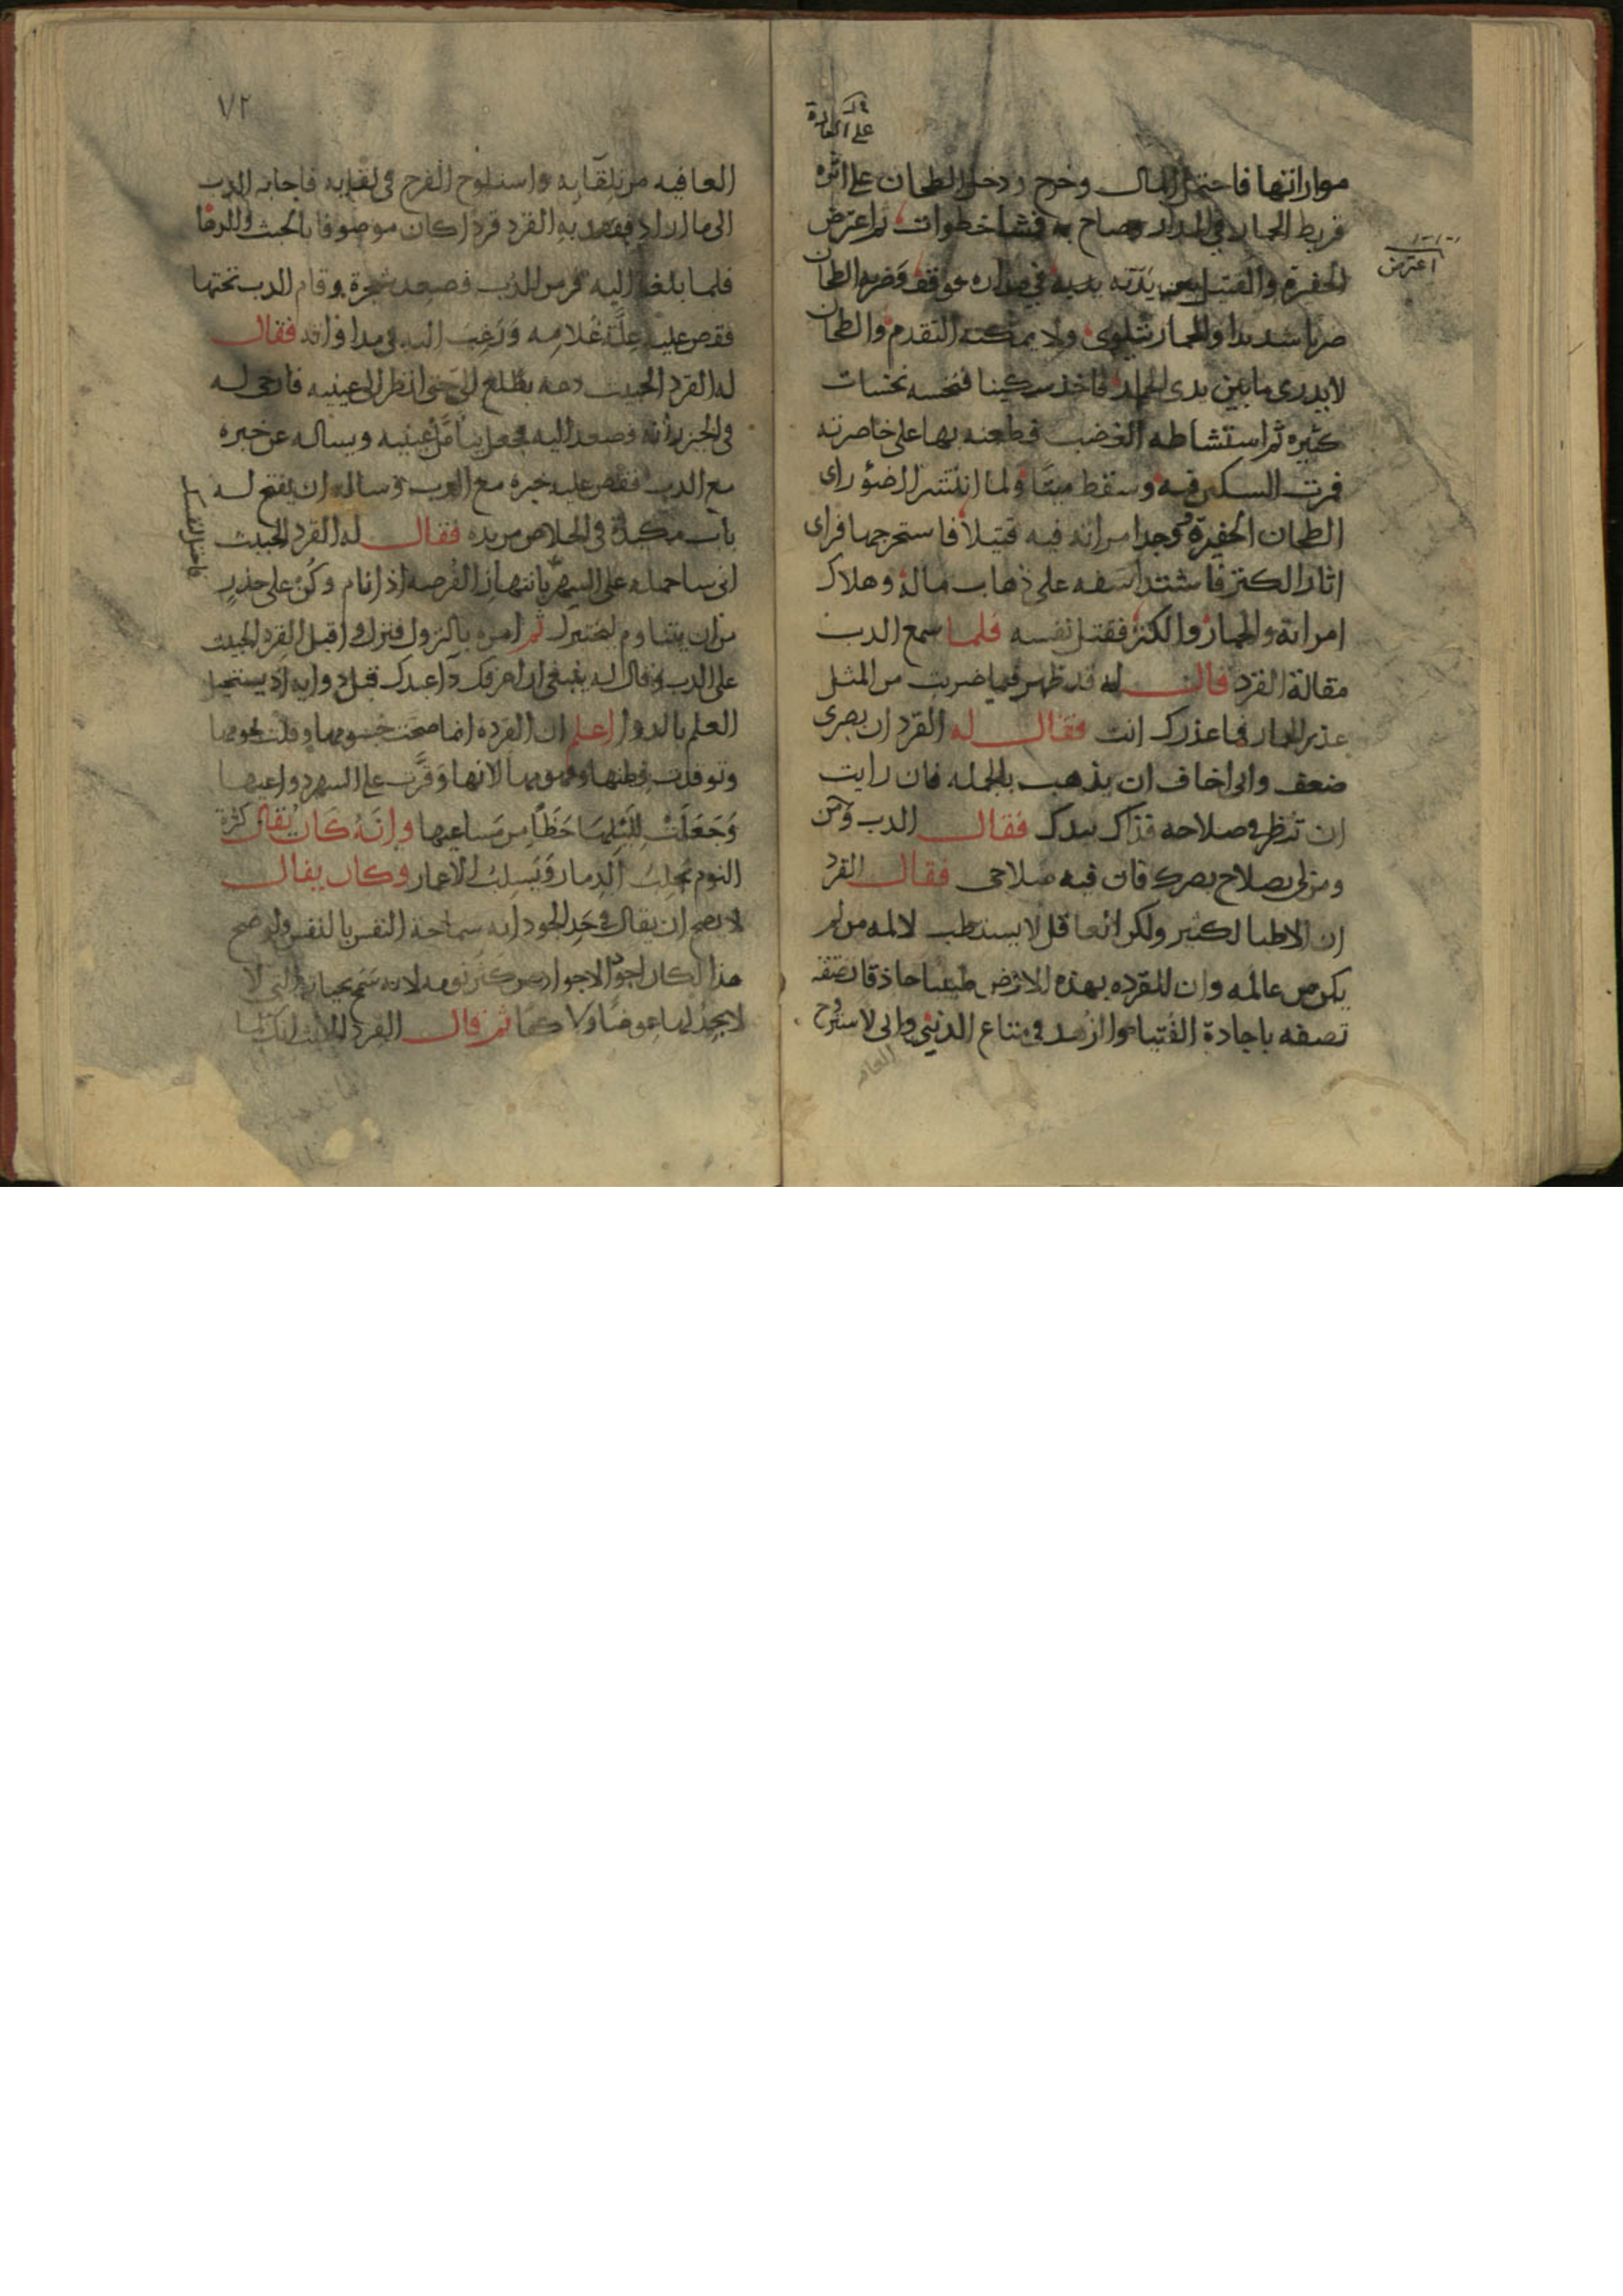 على العادة
مواراتها فاحتمل المال وخرج ودخل الطحان على اثره
فربط الحمار في المدار وصاح به فمشا خطوات ثم اعترض
اعترض
الحفرة والقتيل بين يديه في مداره فوقف فضربه الطحان
ضربا شديدا والحمار يتلوى ولا يمكنه التقدم والطحان
لا يدرى ما بين يدى الحمار فاخذ سكينا فنخسه نخسات
كثيره ثم استشاط به الغضب فطعنه بها على خاصرته
فمرت السكين فيه وسقط ميتا ولما انتشر الضؤ راى
الطحان الحفرة ووجد امراته فيه قتيلا فاستخرجها فراى
اثار الكنز فاشتد اسفه على ذهاب ماله وهلاك
امراته والحمار والكنز فقتل نفسه فلما سمع الدب
مقالة القرد قال له قد ظهر فيما ضربت من المثل
عذر الحمار فما عذرك انت فقال له القرد ان بصرى
ضعف وانى اخاف ان يذهب بالجمله فان رايت
ان تنظر فى صلاحه فذاك بيدك فقال الدب ومن
ومن لى بصلاح بصرك فان فيه صلاحى فقال القرد
ان الاطبا لكثير ولكن العاقل لا يستطب لالمه من لم
يكن من عالمه وان للقرده بهذه الارض طبيبا حاذقا
تصفه باجادة الفتيا والزهد فى متاع الدنيى وانى لاستروح
٧٢
العافيه من تلقايه واستلوح الفرج فى لقايه فاجابه الدب
الى ما اراد فقصد به القرد قردا كان موصوفا بالخبث والدها
فلما بلغا اليه فر من الدب فصعد شجرة وقام الدب تحتها
فقص عليه علة غلامه ورغب اليه فى مداواته فقال
له القرد الخبيث دعه يطلع الى حتى انظر الى عينيه فارخى له
فى الجزيرانه فصعد اليه فجعل يتامل عينيه ويساله عن خبره
مع الدب فقص عليه خبره مع الدب وساله ان يفتح له
باب مكيدة فى الخلاص من يده فقال له القرد الخبيث
انى ساحمله على السهر فانتهز الفرصه اذا نام وكن على حذر
من ان يتناوم ليختبرك ثم امره بالنزول فنزل واقبل القرد الخبيث
على الدب وقال له ينبغى ان اعرفك دا عبدك قبل دوايه اذ يستحيل
العلم بالدوا اعلم ان القردة انما صحت جسومها وقلت لحومها
وتوقدت فطنها وفهومها لانها وفرت على السهر دواعيها
وجعلت لليلها حظا من مساعيها وانه كان يقال كثرة
النوم تجلب الدمار وتسلب الاعمار وكان يقال
لا يصح ان يقال فى حد الجود انه سماحة النفس بالنفس ولو صح
هذا لكان اجود الاجواد من كثر نومه لانه سمح بحياته التى لا
لا يجد لها عوضا ولا ثم قال القرد الخبيث